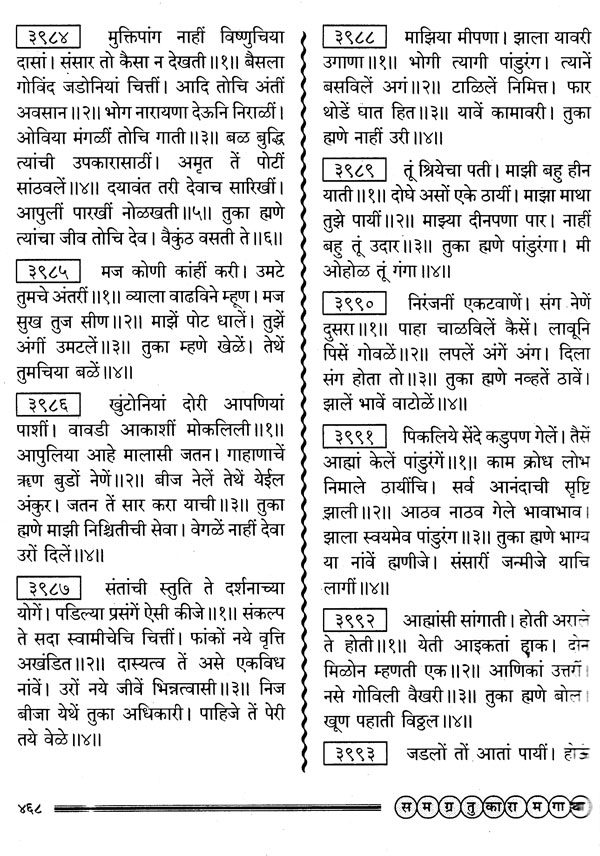 ३९८४ मुक्तिपांग नाहीं विष्णुचिया
दासां। संसार तो कैसा न देखती॥१॥ बैसला
गोविंद जडोनियां चित्तीं। आदि तोचि अंतीं
अवसान॥२॥ भोग नारायणा देऊनि निराळीं।
ओविया मंगळीं तोचि गाती॥३॥ बळ बुद्धि
त्यांची उपकारासाठीं। अमृत तें पोटीं
सांठवलें॥४॥ दयावंत तरी देवाच सारिखीं।
आपुलीं पारखीं नोळखती॥५॥ तुका ह्मणे
त्यांचा जीव तोचि देव। वैकुंठ वसती ते॥६॥
३९८५ मज कोणी कांहीं करी। उमटे
तुमचे अंतरीं॥१॥ व्याला वाढविने म्हूण। मज
सुख तुज सीण॥२॥ माझें पोट धालें। तुझें
अंगीं उमटलें॥३॥ तुका म्हणे खेळें। तेथें
तुमचिया बळें॥४॥
३९८६ खुंटोनियां दोरी आपणियां
पाशीं। वावडी आकाशीं मोकलिली॥१॥
आपुलिया आहे मालासी जतन। गाहाणाचें
ऋण बुडों नेणें॥२॥ बीज नेलें तेथें येईल
अंकुर। जतन तें सार करा याची॥३॥ तुका
ह्मणे माझी निश्चितीची सेवा। वेगळें नाहीं देवा
उरों दिलें॥४॥
३९८७ संतांची स्तुति ते दर्शनाच्या
योगें। पडिल्या प्रसंगें ऐसी कीजे॥१॥ संकल्प
ते सदा स्वामीचेचि चित्तीं। फांकों नये वृत्ति
अखंडित॥२॥ दास्यत्व तें असे एकविध
नांवें। उरों नये जीवें भिन्नत्वासी॥३॥ निज
बीजा येथें तुका अधिकारी। पाहिजे तें पेरी
तये वेळे॥४॥
३९८८ माझिया मीपणा। झाला यावरी
उगाणा॥१॥ भोगी त्यागी पांडुरंग। त्यानें
बसविलें अगं॥२॥ टाळिलें निमित्त। फार
थोडें घात हित॥३॥ यावें कामावरी। तुका
ह्मणे नाहीं उरी॥४॥
३९८९ तूं श्रियेचा पती। माझी बहु हीन
याती॥१॥ दोघे असों एके ठायीं। माझा माथा
तुझे पायीं॥२॥ माझ्या दीनपणा पार। नाहीं
बहु तूं उदार॥३॥ तुका ह्मणे पांडुरंगा। मी
ओहोळ तूं गंगा॥४॥
३९९० निरंजनीं एकटवाणें। संग नेणें
दुसरा॥१॥ पाहा चाळविलें कैसें। लावूनि
पिसें गोवळें॥२॥ लपलें अंगें अंग। दिला
संग होता तो॥३॥ तुका ह्मणे नव्हतें ठावें।
झालें भावें वाटोळें॥४॥
३९९१ पिकलिये सेंदे कडुपण गेलें। तैसें
आह्मां केलें पांडुरंगें॥१॥ काम क्रोध लोभ
निमाले ठायींचि। सर्व आनंदाची सृष्टि
झाली॥२॥ आठव नाठव गेले भावाभाव।
झाला स्वयमेव पांडुरंग॥३॥ तुका ह्मणे भाग्य
या नांवें ह्मणीजे। संसारीं जन्मीजे याचि
लागीं॥४॥
३९९२ आह्मांसी सांगाती। होती अराले
ते होती॥१॥ येती आइकतां हाक। दोन
मिळोन म्हणती एक॥२॥ आणिकां उत्तरीं।
नसे गोविली वैखरी॥३॥ तुका ह्मणे बोल।
खूण पहाती विठ्ठल॥४॥
३९९३ जडलों तों आतां पायीं।
४६८ समग्र तुकाराम गाथा